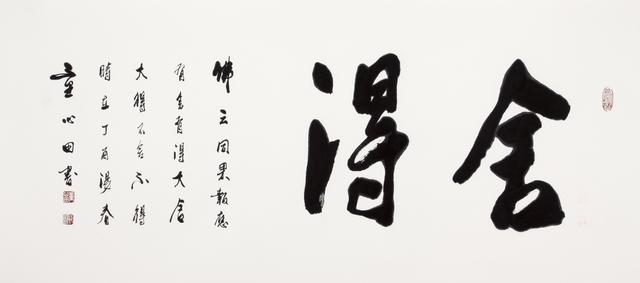 舍得
佛云因果報應
有舍有得大舍
大得不舍不得
時在丁酉湯春
童心田書